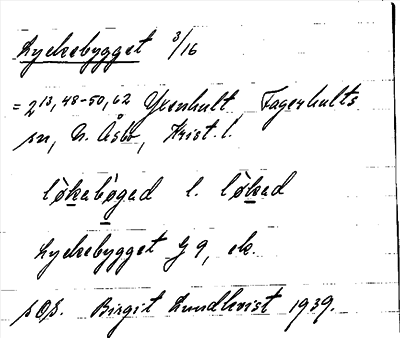 Lyckebygget 3/16
= 2 13, 48-50, 62 Grönhult Fagerhults
sn, N. Åsbo, Krist. l.
lökabögad l. lökad
Lyckebygget J 9, ek.
s OS. Birgit Lundkvist 1939.